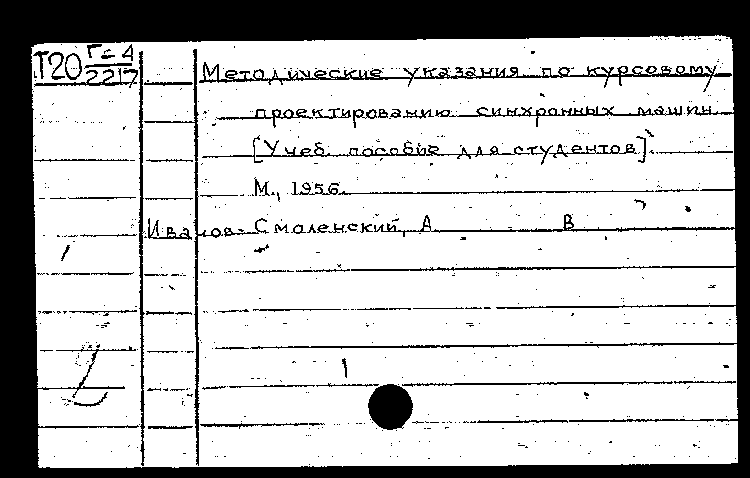 Т20 Г-4
2217
Методические указания по курсовому
проектированию синхронных машин
[Учеб. пособие для студентов].
М., 1956.
Иванов-Смоленский, А В
2